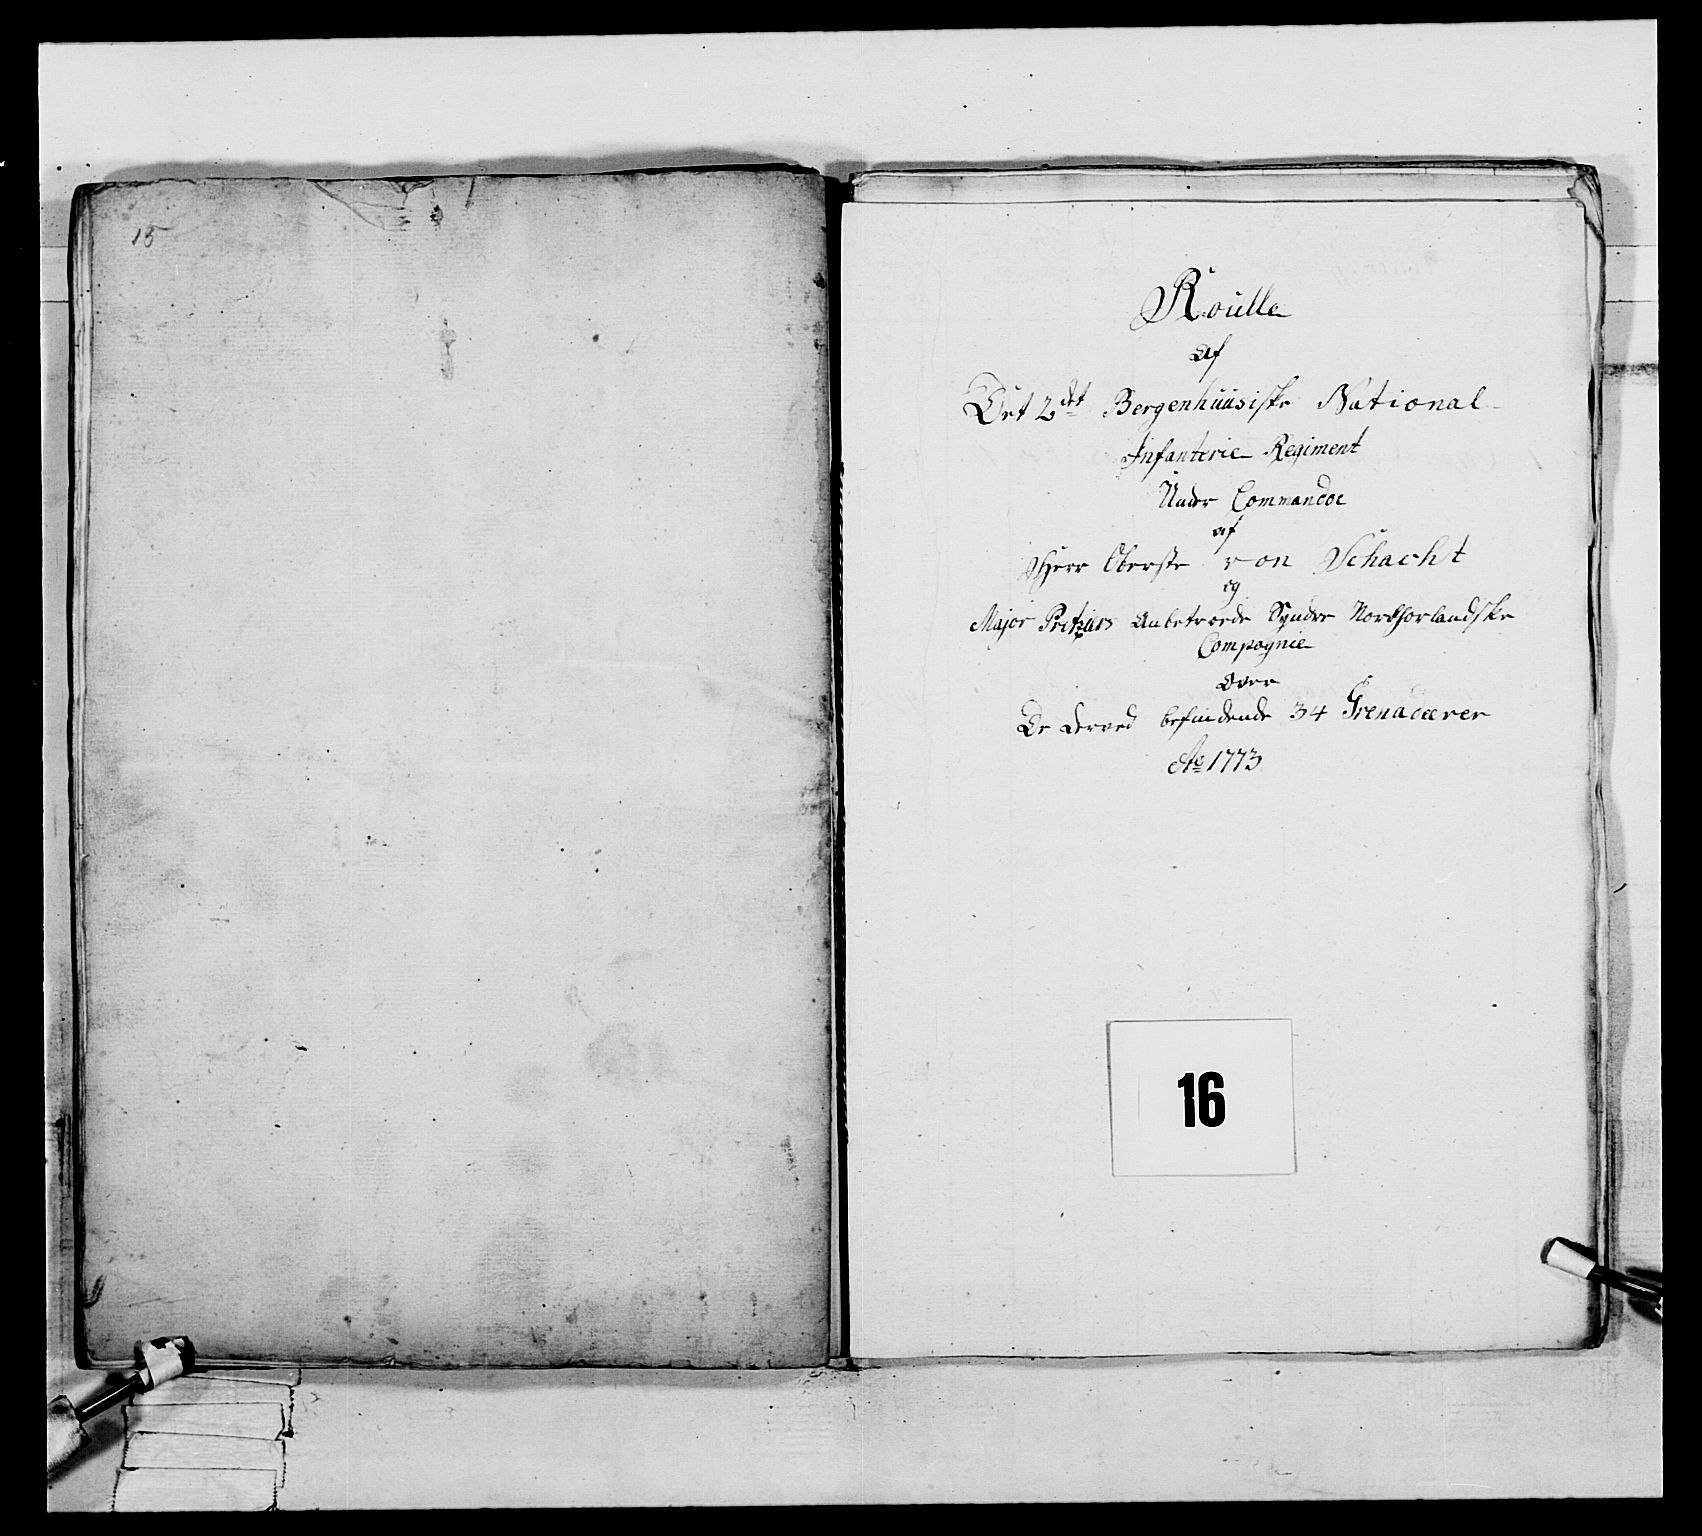 15
Roulle
af
Det 2det Bergenhuusiske National
Infanterie Regiment
Under Commandoe
af
Herr Oberste von Schacht
og
Major Anbetroede Syndre Nordhorlandske
Compagnie
Over
De derved befindende 34 Grenadeerer
Ao 1773
16